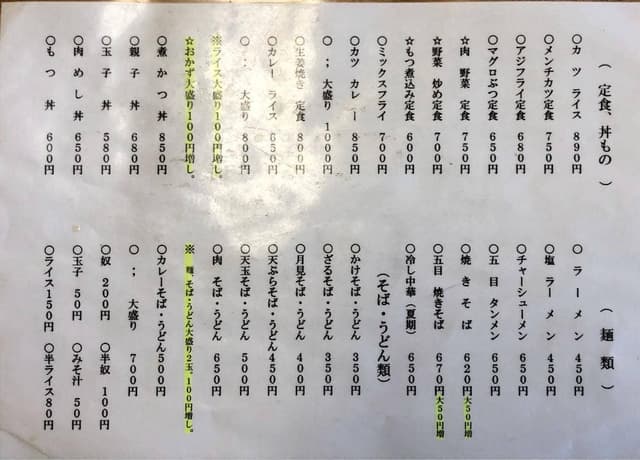 （ 定食、丼もの ）
○カツ ライス 890円
○メンチカツ定食 750円
○アジフライ定食 680円
○マグロぶつ定食 650円
☆肉 野菜 定食 750円
☆野菜 炒め定食 700円
☆もつ煮込み定食 600円
○ミックスフライ 700円
○カツ カレー 850円
○ ； 大盛り 1000円
○生姜焼き 定食 800円
○カレー ライス 650円
○ ； 大盛り 800円
※ライス大盛り100円増し。
☆おかず大盛り100円増し。
○煮 かつ 丼 850円
○親 子 丼 680円
○玉 子 丼 580円
○肉 めし 丼 650円
○もつ 丼 600円
（ 麺 類 ）
○ラーメン 450円
○塩 ラーメン 450円
○チャーシューメン 650円
○五目 タンメン 650円
○焼きそば 620円 大50円増
○五目 焼きそば 670円 大50円増
○冷し中華（夏期） 650円
（そば・うどん類）
○かけそば・うどん 350円
○ざるそば・うどん 350円
○月見そば・うどん 400円
○天ぷらそば・うどん 450円
○天玉そば・うどん 500円
○肉 そば・うどん 650円
※ 麺、そば・うどん大盛り2玉、100円増し。
○カレーそば・うどん 500円
○ ； 大盛り 700円
○奴 200円 ○半奴 100円
○玉子 50円 ○みそ汁 50円
○ライス150円 ○半ライス80円